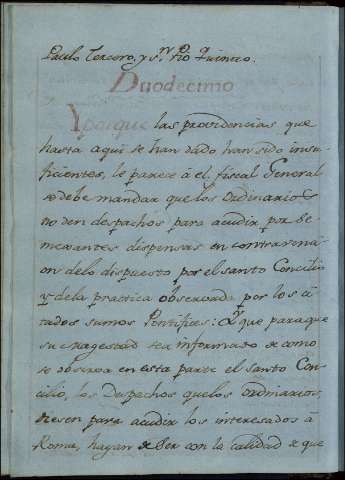 Paulo Tercero, y sn. Pio Quinto.
Duodecimo
Y porque las providencias que
hasta aqui se han dado han sido insu-
ficientes, le parece â el fiscal General
se debe mandar que los ordinarios
no den despachos para acudir por se-
mexantes dispensas en contravenci-
on delo dispuesto por el santo Concilio
y dela practica observada por los ci-
tados sumos Pontifices: Y que paraque
su Magestad sea informado de como
se observa en esta parte el santo Con-
cilio, los Despachos quelos ordinarios,
diesen para acudir los interesados â
Roma, hayan de ser con la calidad de que